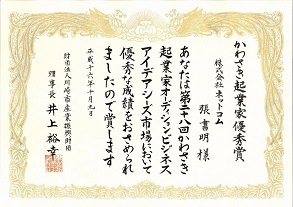 かわさき起業家優秀賞
株式会社ネットコム
張書明 様
あなたは第二十八回かわさき
起業家オーディションビジネス
アイデアシーズ市場において
優秀な成績をおさめられ
ましたので賞します
平成十六年十月九日
財団法人川崎市産業振興財団
理事長 井上裕幸